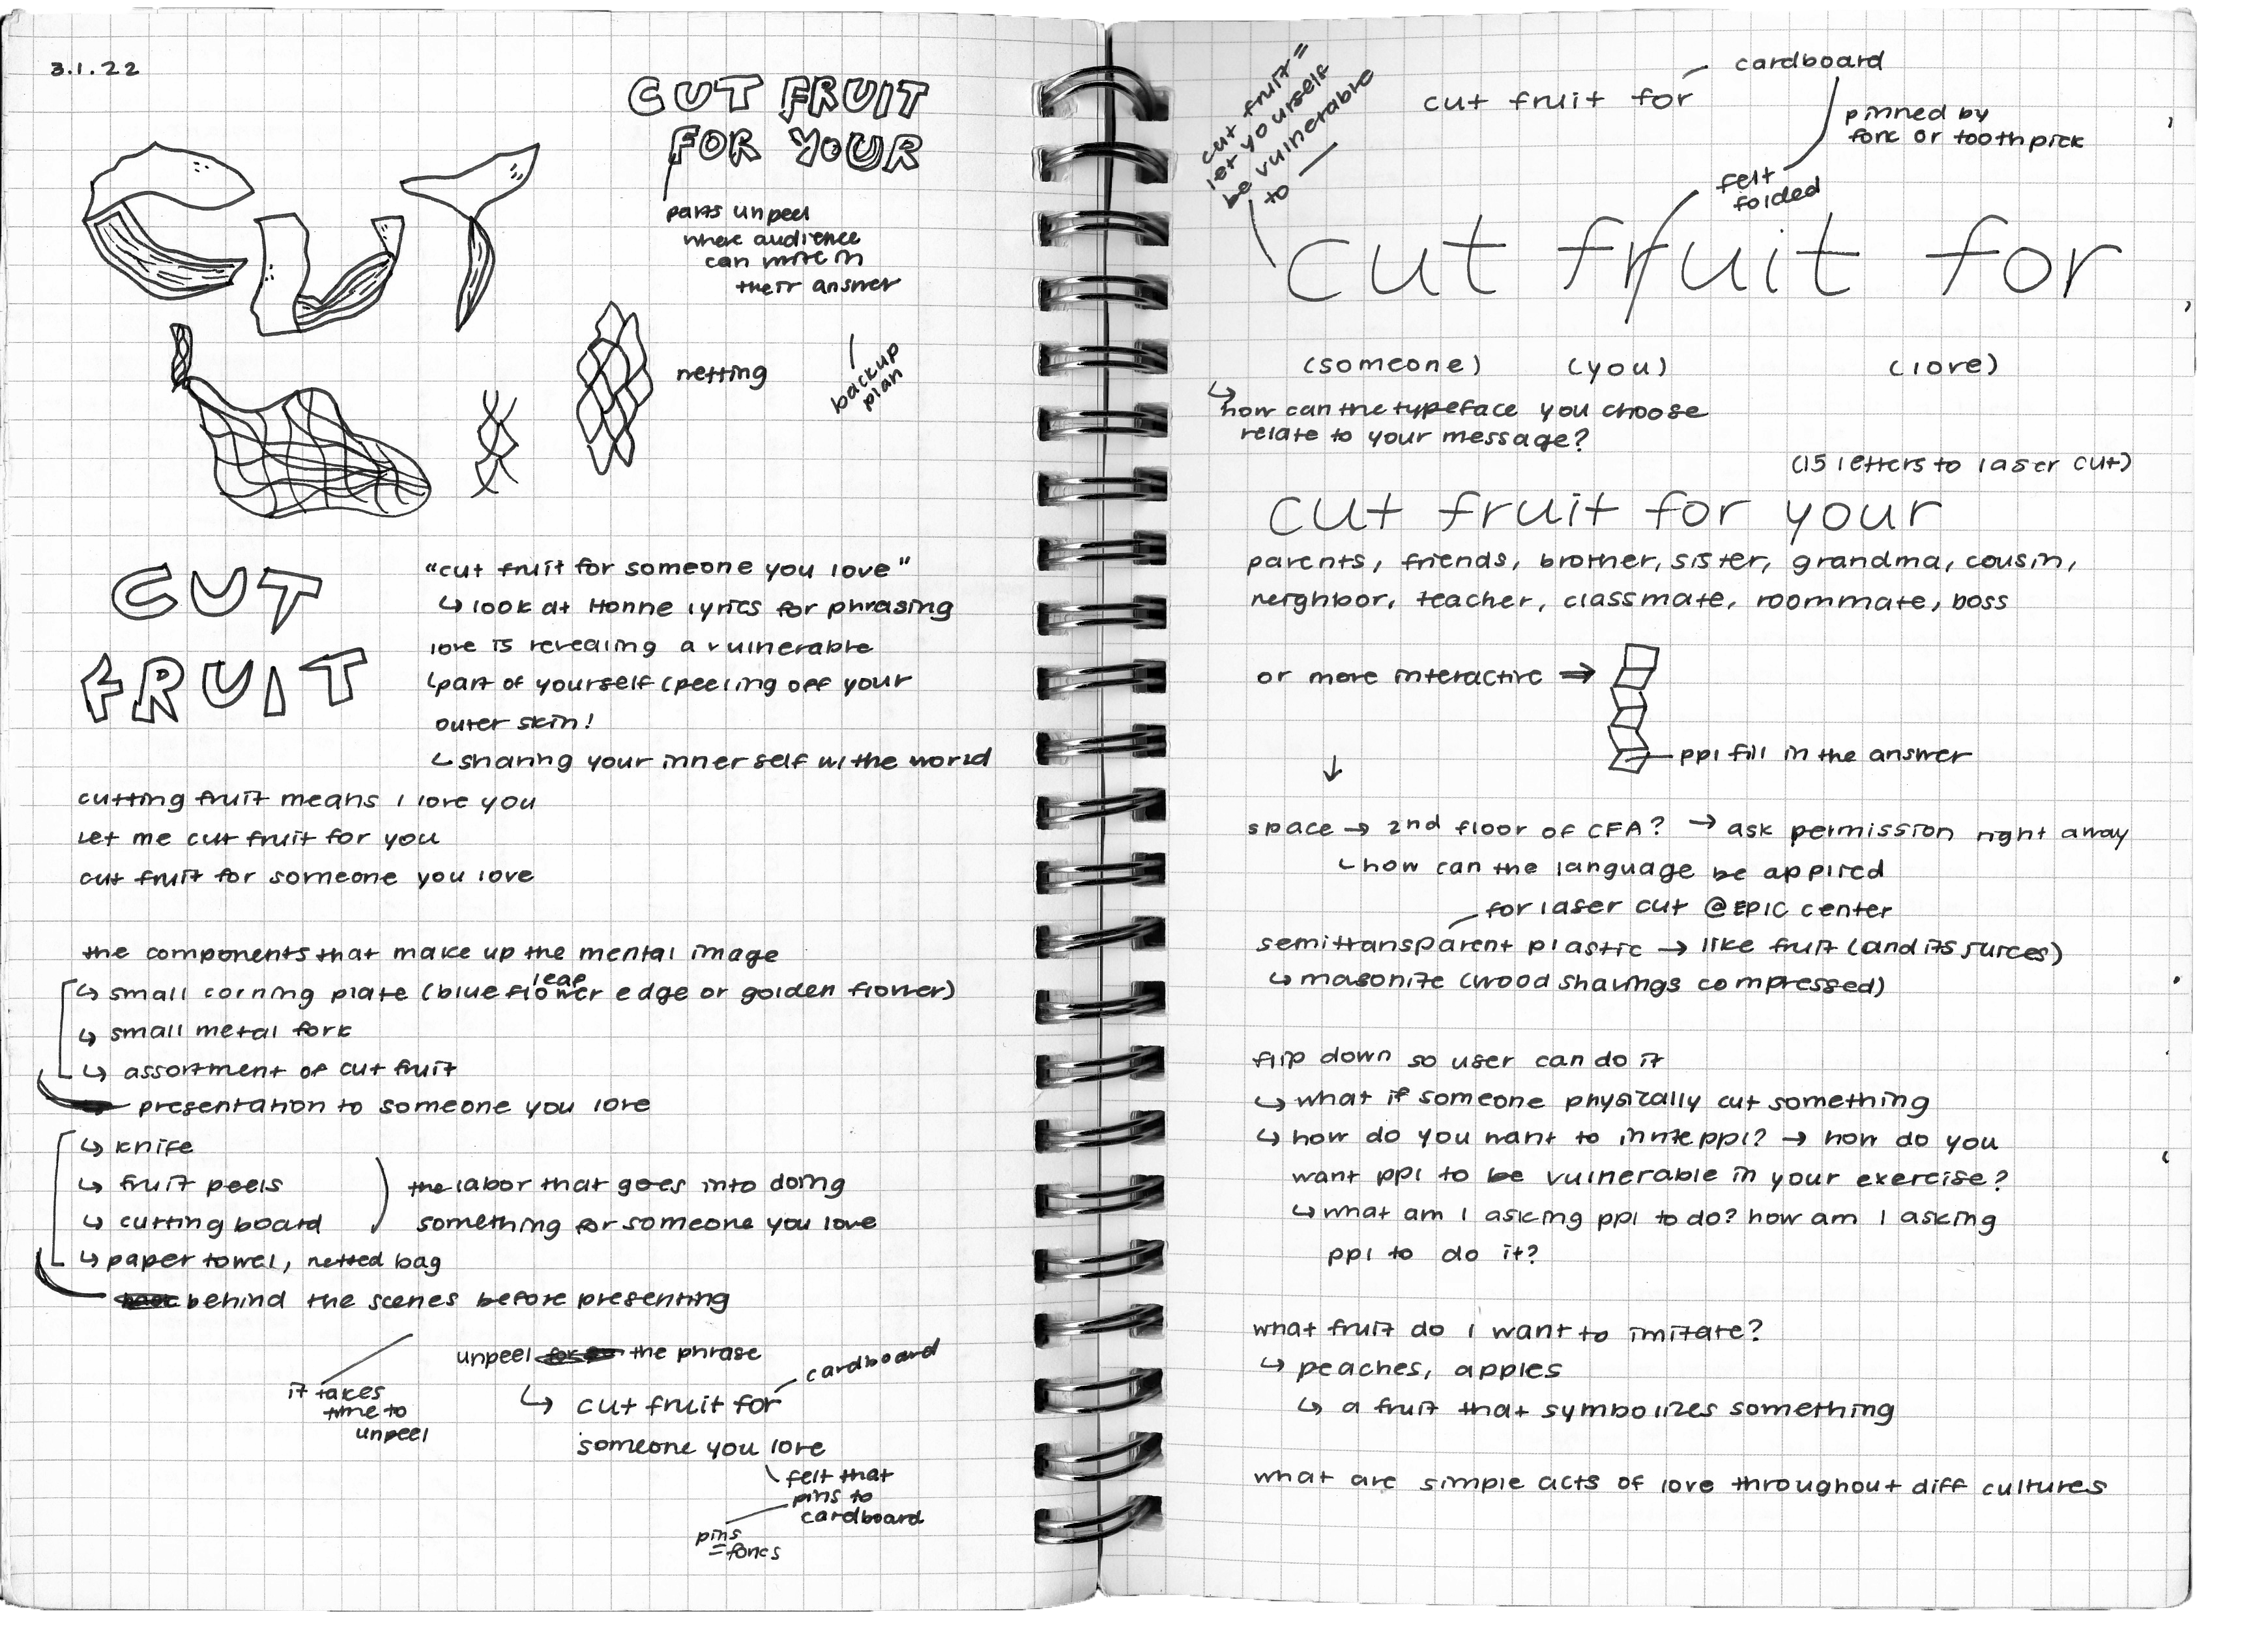 3.1.22
CUT FRUIT
FOR YOUR
CUT
parts unpeel
where audience
can write in
their answer
netting
backup
plan
CUT
FRUIT
"cut fruit for someone you love"
↳ look at Honne lyrics for phrasing
love is revealing a vulnerable
↳ part of yourself (peeling off your
outer skin!
↳ sharing your inner self w/ the world
cutting fruit means I love you
Let me cut fruit for you
cut fruit for someone you love
the components that make up the mental image
leaf
↳ small corning plate (blue flower edge or golden flower)
↳ small metal fork
↳ assortment of cut fruit
presentation to someone you love
↳ knife
↳ fruit peels
↳ cutting board
the labor that goes into doing
something for someone you love
↳ paper towel, netted bag
behind the scenes before presenting
it takes
time to
unpeel
unpeel the phrase
cardboard
↳ cut fruit for
someone you love
felt that
pins to
cardboard
pins
= forks
cut fruit =
let yourself
be vulnerable
to —
cut fruit for
cardboard
pinned by
fork or toothpick
felt
folded
cut fruit for
(someone) (you) (love)
↳ how can the typeface you choose
relate to your message?
(15 letters to laser cut)
cut fruit for your
parents, friends, brother, sister, grandma, cousin,
neighbor, teacher, classmate, roommate, boss
or more interactive ⇒
ppl fill in the answer
↓
space → 2nd floor of CFA? → ask permission right away
↳ how can the language be applied
for laser cut @EPIC center
semitransparent plastic → like fruit (and its juices)
↳ masonite (wood shavings compressed)
flip down so user can do it
↳ what if someone physically cut something
↳ how do you want to invite ppl? → how do you
want ppl to be vulnerable in your exercise?
↳ what am I asking ppl to do? how am I asking
ppl to do it?
what fruit do I want to imitate?
↳ peaches, apples
↳ a fruit that symbolizes something
what are simple acts of love throughout diff cultures